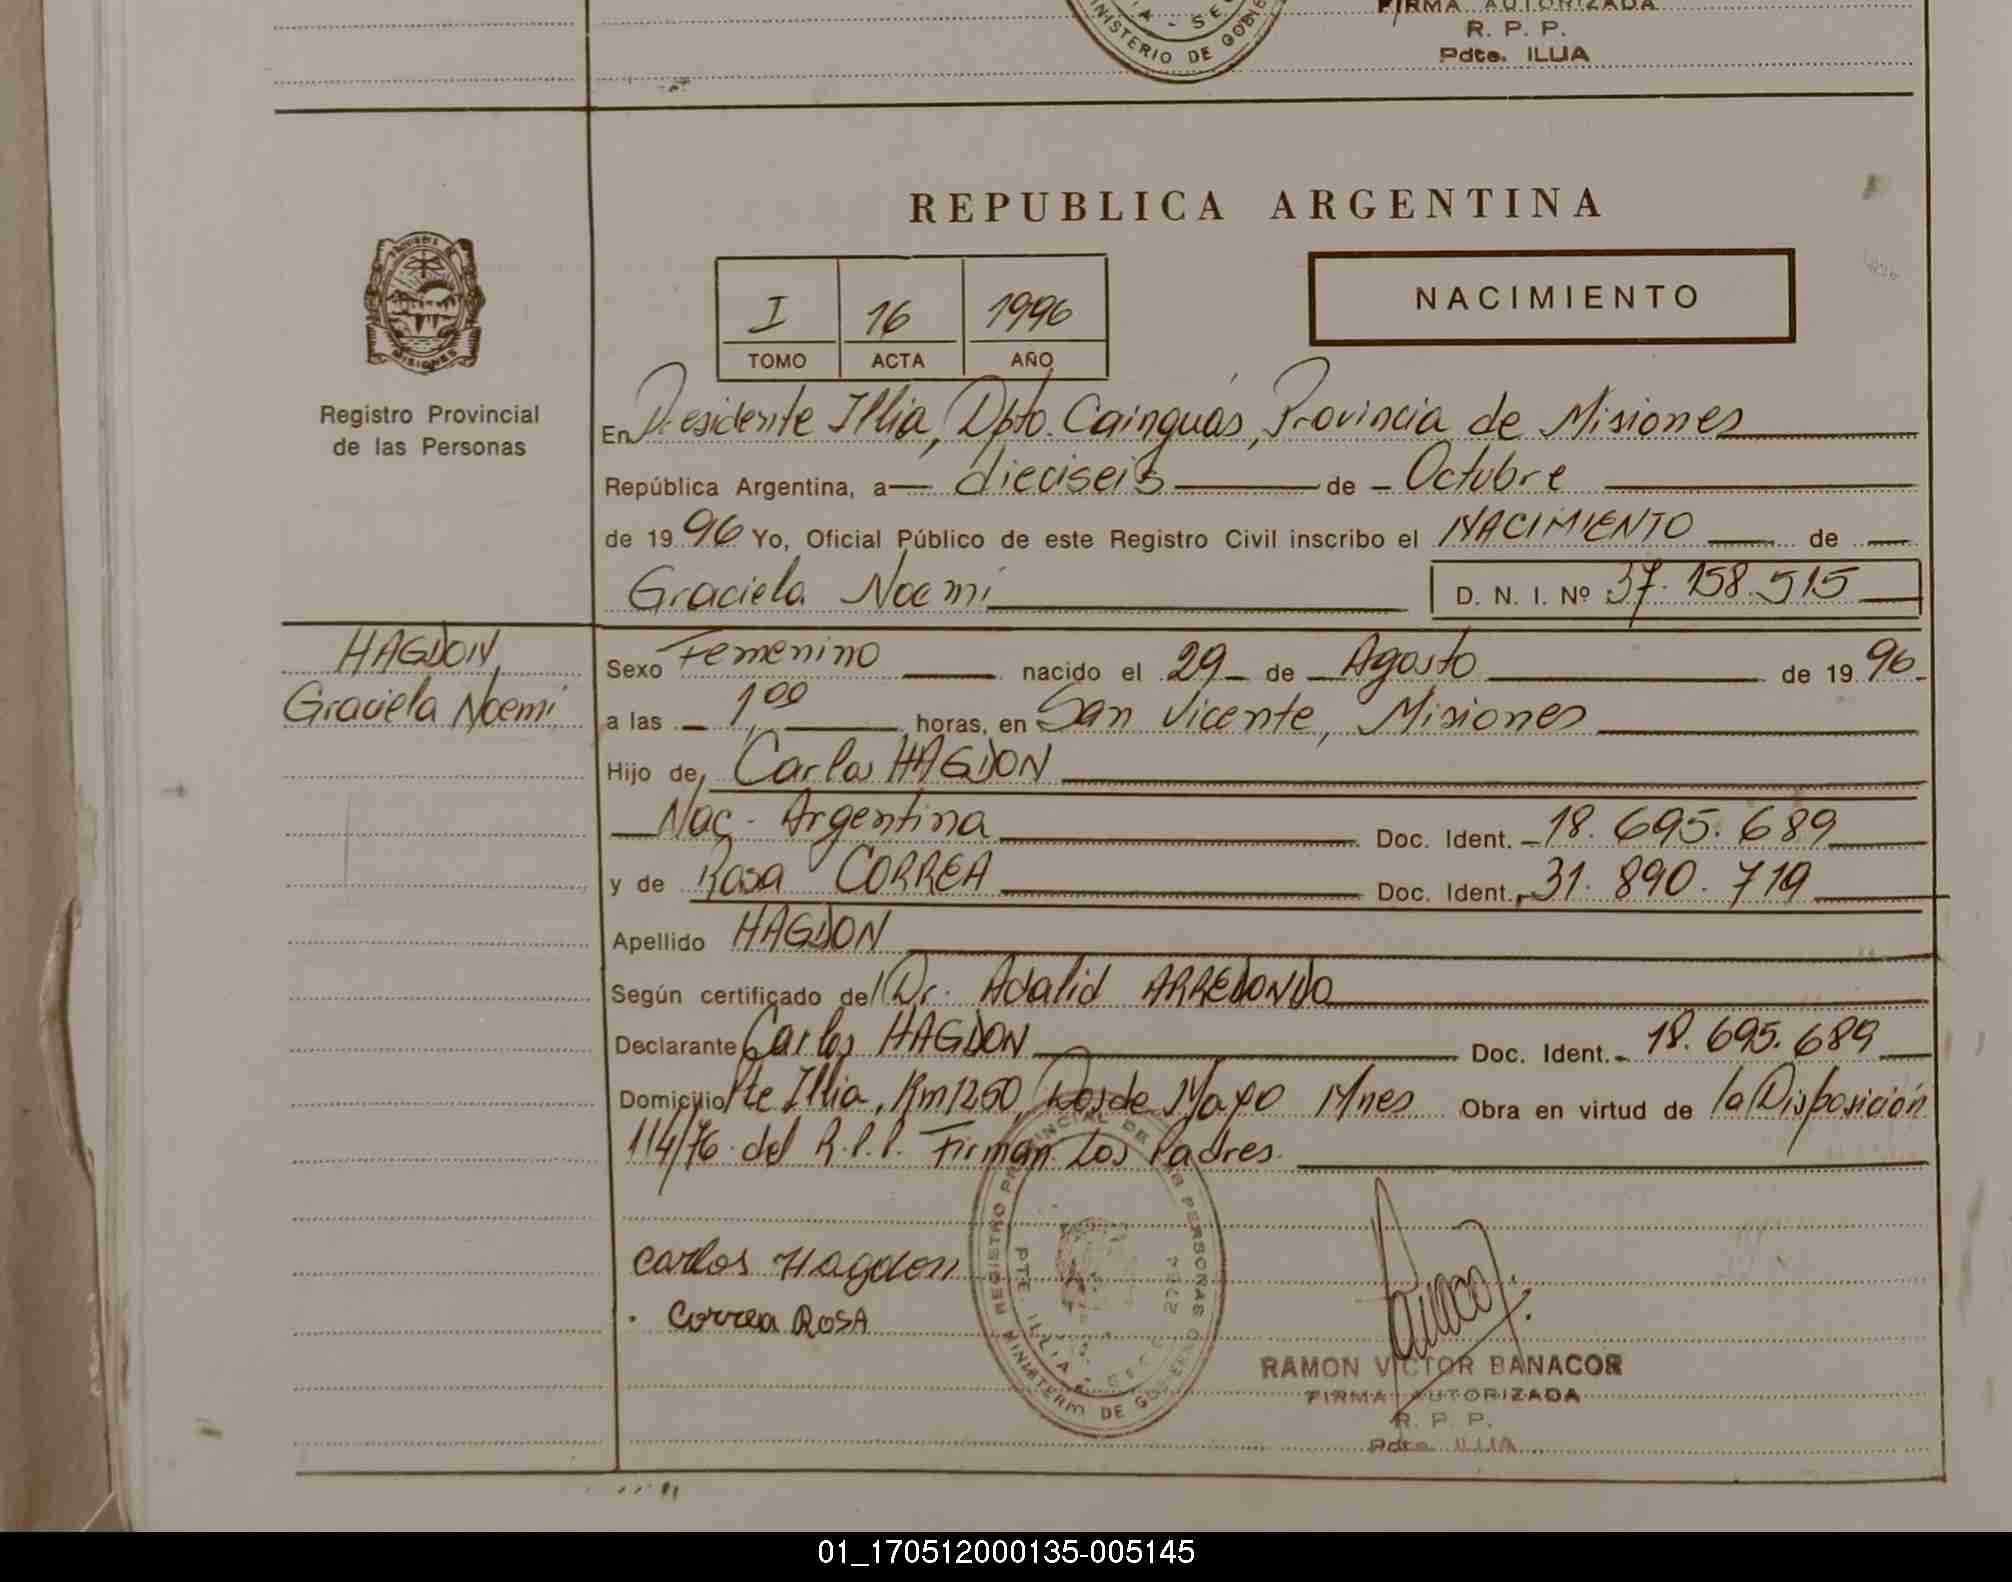 FIRMA AUTORIZADA
R. P. P.
Pdte. ILLIA
MINISTERIO DE GOBIE
REPUBLICA ARGENTINA
NACIMIENTO
I 16 1996
TOMO ACTA AÑO
MISIONES
Registro Provincial
de las Personas
En Presidente Illia, Dpto. Cainguás, Provincia de Misiones
República Argentina, a dieciseis de Octubre
de 1996 Yo, Oficial Público de este Registro Civil inscribo el NACIMIENTO de
Graciela Noemi D. N. I. Nº 37.158.515
HAGDON,
Graciela Noemi
Sexo Femenino nacido el 29 de Agosto de 1996
a las 1,00 horas, en San Vicente, Misiones
Hijo de, Carlos HAGDON
Nac. Argentina Doc. Ident. 18.695.689
y de Rosa CORREA Doc. Ident. 31.890.719
Apellido HAGDON
Según certificado del Dr. Adalid ARREDONDO
Declarante Carlos HAGDON Doc. Ident. 18.695.689
Domicilio Pte Illia, Km 1260, Dos de Mayo Mnes Obra en virtud de la Disposición
114/76 del R.P.P. Firman Los Padres.
carlos Hagdon
Correa ROSA
REGISTRO PROVINCIAL DE LAS PERSONAS
MINISTERIO DE GOBIERNO
PTE ILLIA - SECC
RAMON VICTOR BANACOR
FIRMA AUTORIZADA
R. P. P.
Pdte. ILLIA
01_170512000135-005145